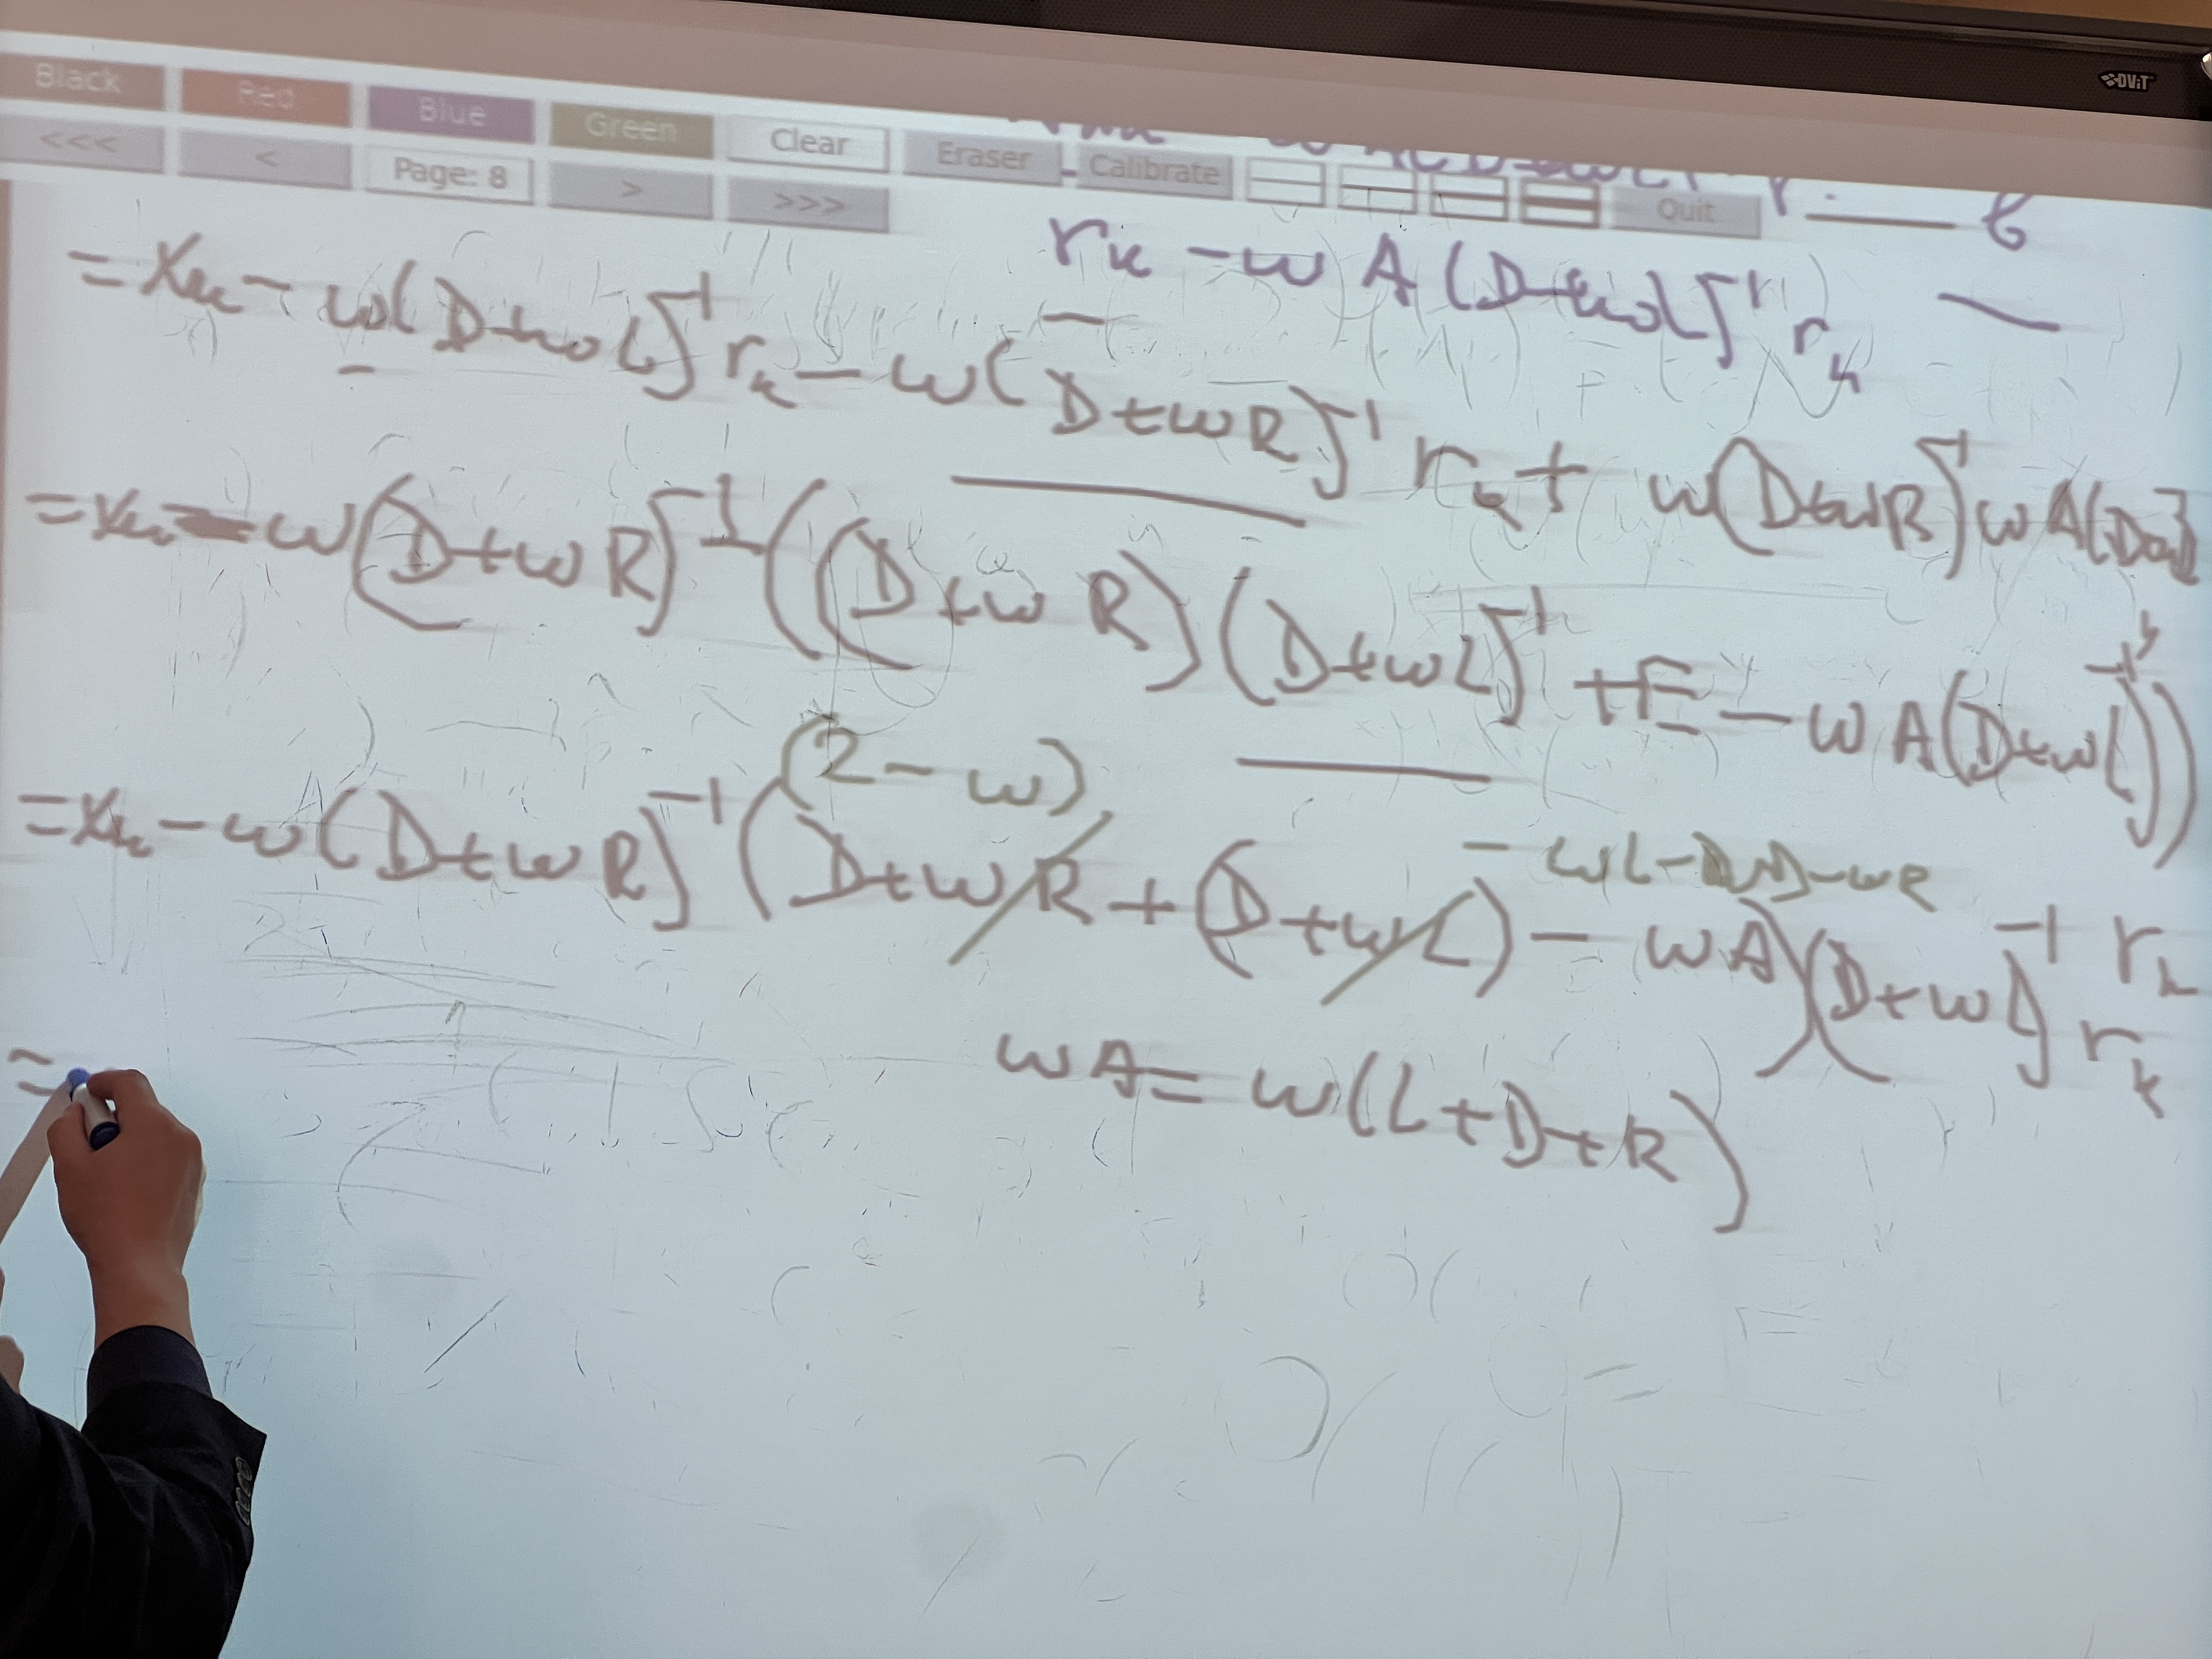 DViT
Black Red Blue Green Clear Eraser Calibrate Quit
<<< < Page: 8 > >>>
r_k - ω A (D+ωL)^{-1} r_k
= x_k - ω(D+ωL)^{-1} r_k - ω(D+ωR)^{-1} r_k + ω(D+ωR)^{-1} ωA(D+ω
= x_k - ω(D+ωR)^{-1}((D+ωR)(D+ωL)^{-1} + E - ωA(D+ωL)^{-1}) r_k
(2-ω)
-ωL-ωD-ωR
= x_k - ω(D+ωR)^{-1}(D+ωR + (D+ωL) - ωA)(D+ωL)^{-1} r_k
ωA = ω(L+D+R)
=